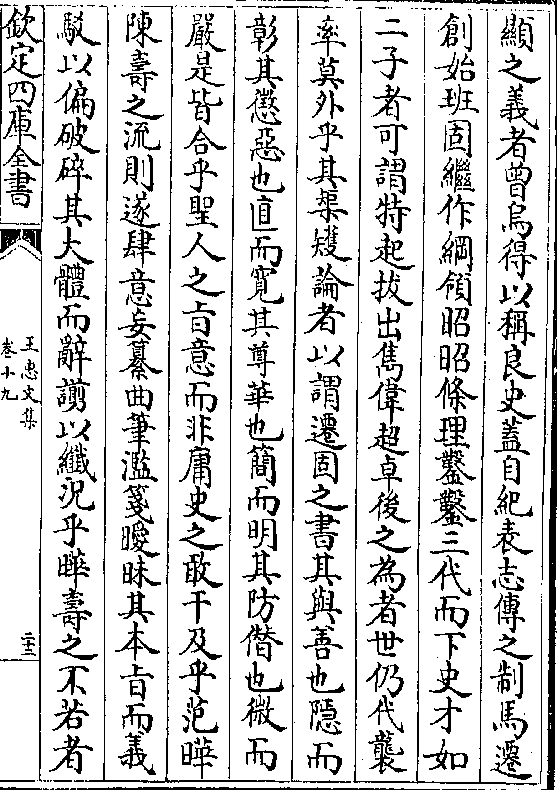 顯之義者曾烏得以稱良史蓋自紀表志傳之制馬遷
創始班固繼作綱領昭昭條理鑿鑿三代而下史才如
二子者可謂特起拔出雋偉超卓後之為者世仍代襲
率莫外乎其榘矱論者以謂遷固之書其與善也隱而
彰其懲惡也直而寛其尊華也簡而明其防僭也微而
嚴是皆合乎聖人之㫖意而非庸史之敢干及乎范曄
陳壽之流則遂肆意妄纂曲筆濫箋曖昧其本㫖而義
駁以偏破碎其大體而辭謭以纖況乎曄壽之不若者
欽定四庫全書
王忠文集
卷十九
二十三